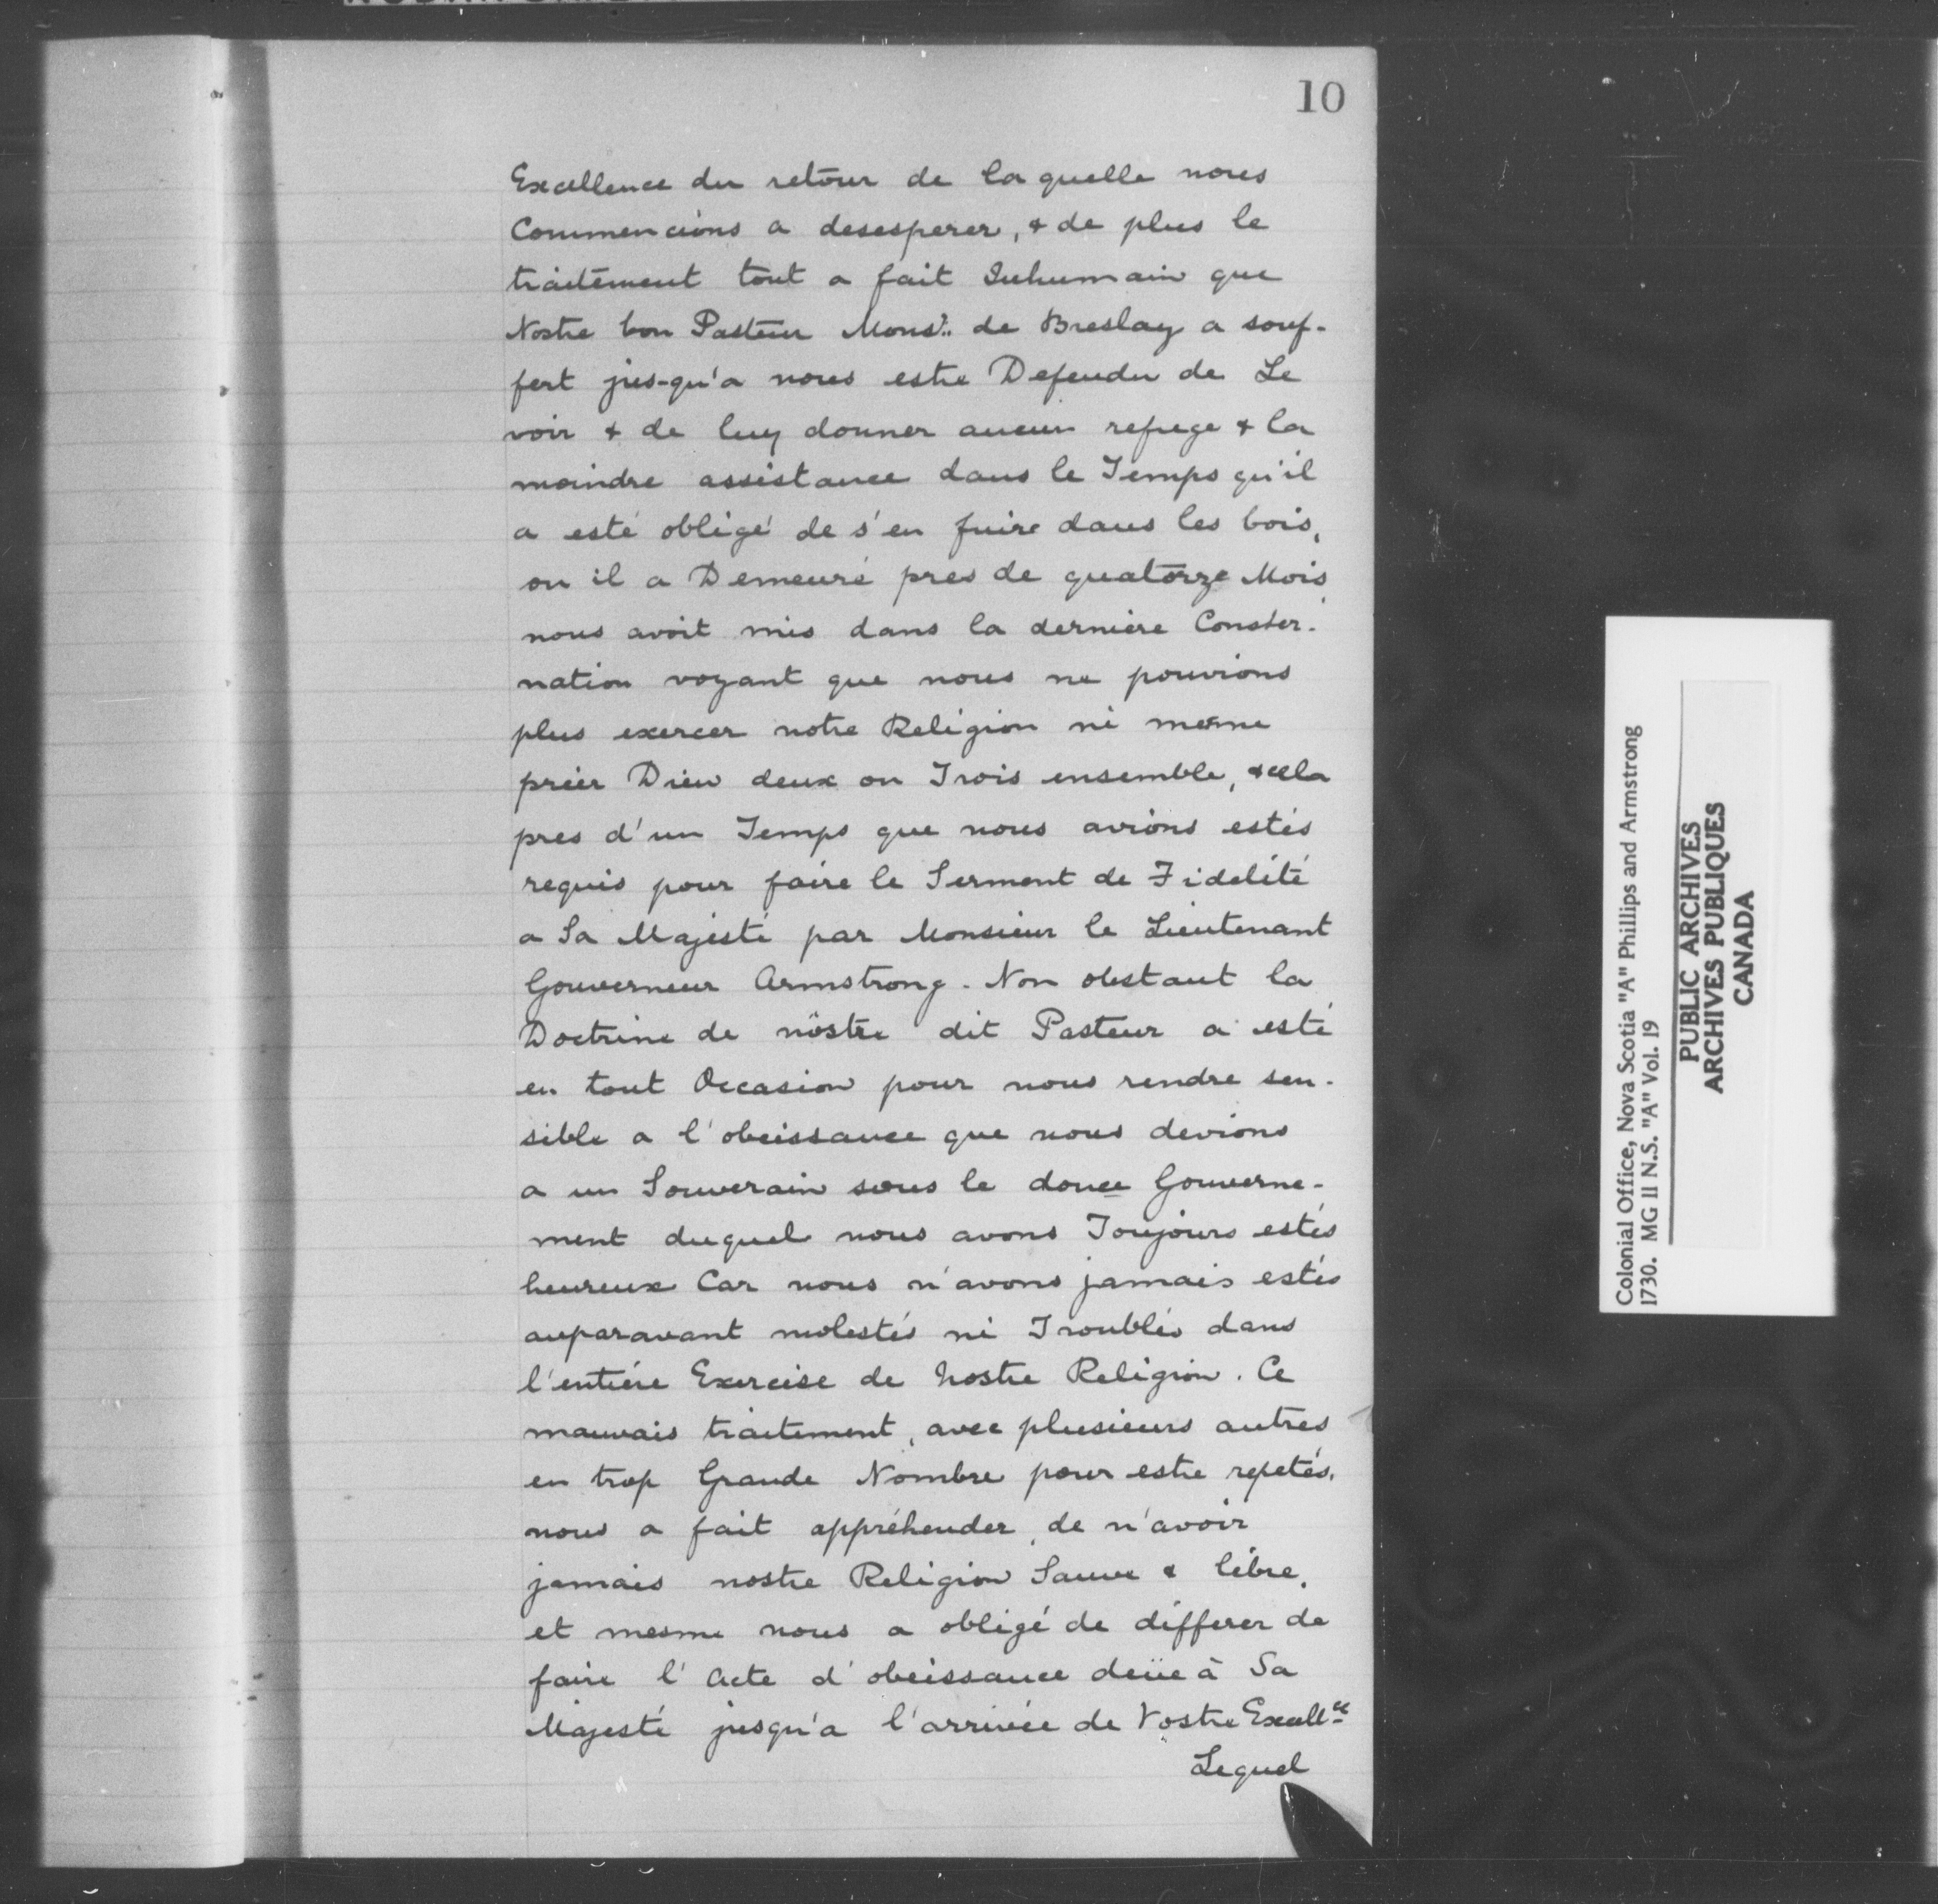 10
Excellence du retour de la quelle nous
Commencions a desesperer, & de plus le
traitement tout a fait Inhumain que
Nostre bon Pasteur Monsr.. de Breslay a souf-
fert jus-qu'a nous estre Defendu de Le
voir & de luy donner aucun refuge & la
moindre assistance dans le Temps qu'il
a esté obligé de s'en fuire dans les bois,
ou il a Demeuré pres de quatorze Mois,
nous avoit mis dans la derniere Conster-
nation voyant que nous ne pouvions
plus exercer notre Religion ni mesme
prier Dieu deux ou Trois ensemble, & cela
pres d'un Temps que nous avions estés
requis pour faire le Serment de Fidelité
a Sa Majesté par Monsieur le Lieutenant
Gouverneur Armstrong. Non obstant la
Doctrine de nôstre dit Pasteur a esté
en tout Occasion pour nous rendre sen-
sible a l'obeissance que nous devions
a un Souverain sous le douce Gouverne-
ment duquel nous avons Toujours estés
heureux Car nous n'avons jamais estés
auparavant molestés ni Troublés dans
l'entiére Exercise de Nostre Religion. Ce
mauvais traitement, avec plusieurs autres
en trop Grande Nombre pour estre repetés,
nous a fait appréhender, de n'avoir
jamais nostre Religion Sauve & libre,
et mesme nous a obligé de differer de
faire l'Acte d'obeissance deüe à Sa
Majesté jusqu'a l'arrivée de Vostre Excellce
Lequel
Colonial Office, Nova Scotia "A" Phillips and Armstrong
1730. MG 11 N.S. "A" Vol. 19
PUBLIC ARCHIVES
ARCHIVES PUBLIQUES
CANADA